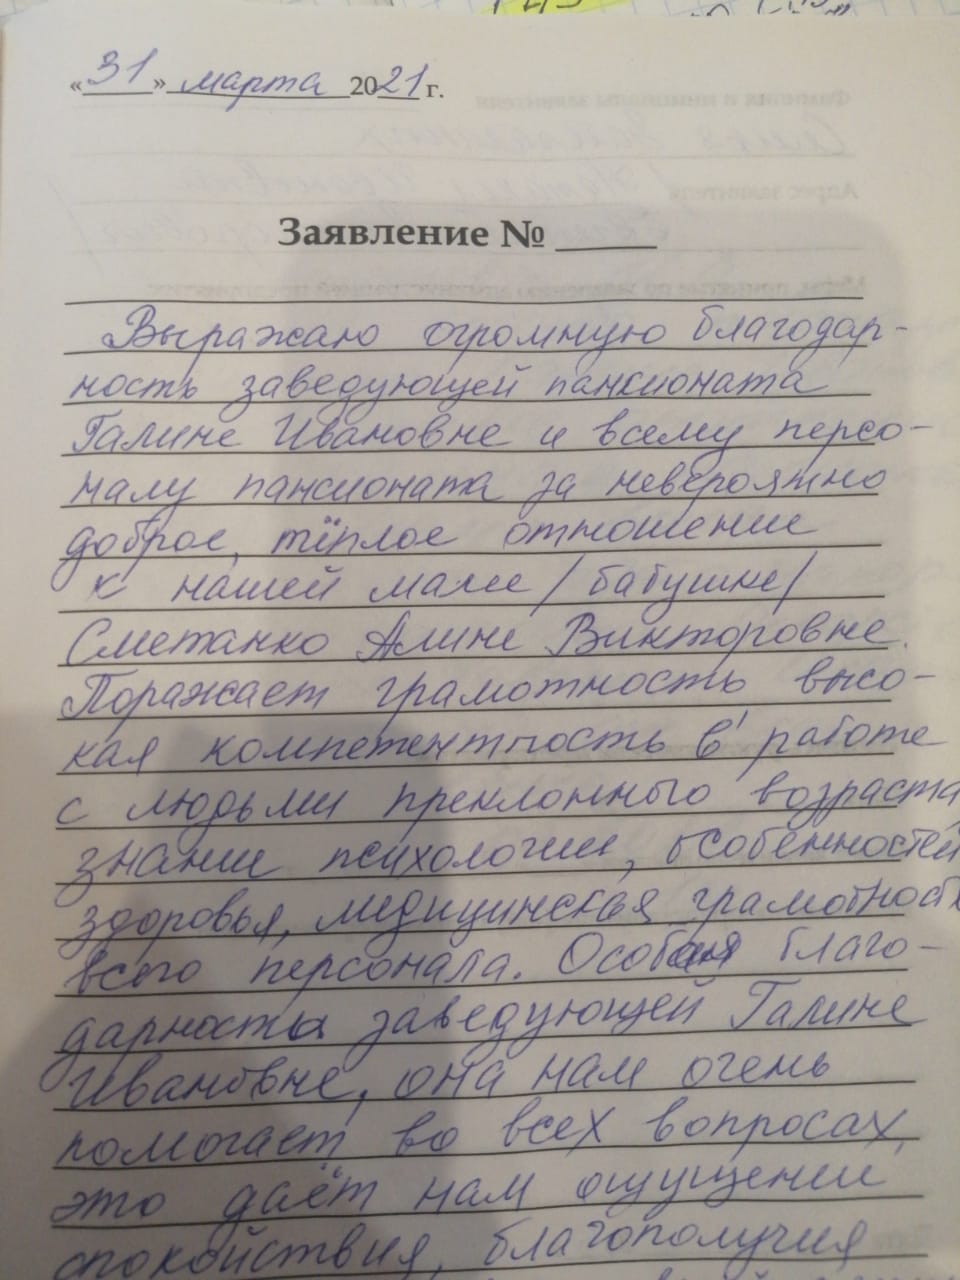 «31» марта 2021 г.
Заявление №
Выражаю огромную благодар-
ность заведующей пансионата
Галине Ивановне и всему персо-
налу пансионата за невероятно
доброе, тёплое отношение
к нашей маме /бабушке/
Сметанко Алине Викторовне.
Поражает грамотность высо-
кая компетентность в работе
с людьми преклонного возраста,
знании психологии, особенностей
здоровья, медицинская грамотность
всего персонала. Особая благо-
дарность заведующей Галине
Ивановне, она нам очень
помогает во всех вопросах,
это даёт нам ощущении
спокойствия, благополучия